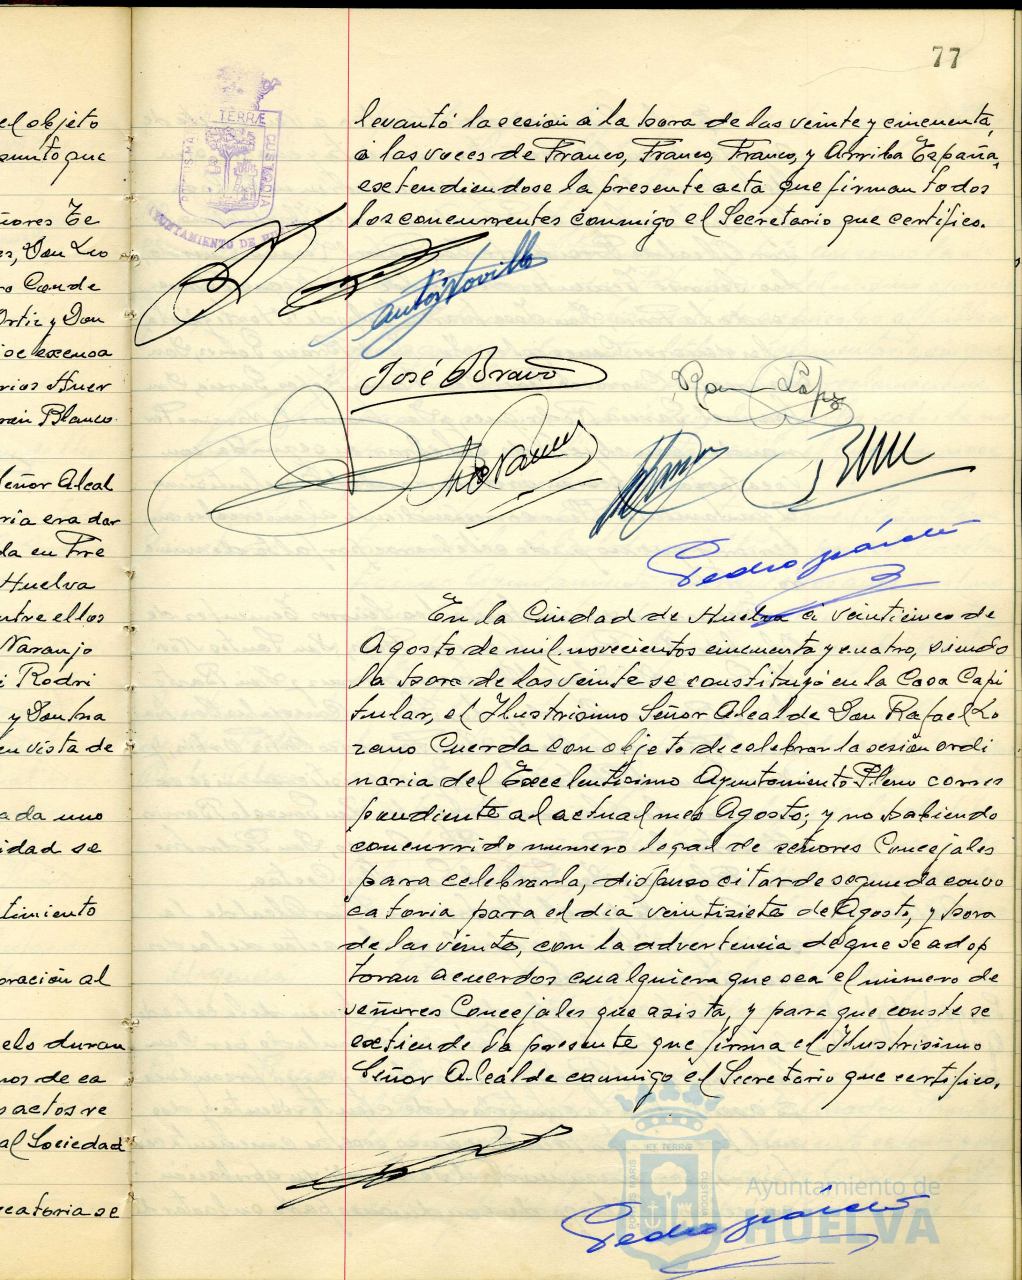 77
el objeto
punto que
ñores Te
es, Don Lu
ro Conde
Ortiz y Don
se excusa
rios Huer
rán Blanco.
Señor Alcal
ría era dar
da en Fre
Huelva
entre ellos
Naranjo
i Rodri
y Dontna
en vista de
ada uno
idad se
timiento
oración al
elo duran
nos de ca
s actos re
al Sociedad
catoria se
PORTUS MARIS ET TERRÆ CUSTODIA
AYUNTAMIENTO DE HU
levantó la sesión á la hora de las veinte y cincuenta,
á las voces de Franco, Franco, Franco, y Arriba España,
extendiendose la presente acta que firman todos
los concurrentes conmigo el Secretario que certifico.
José Bravo
Pedro García
En la Ciudad de Huelva á veinticinco de
Agosto de mil novecientos cincuenta y cuatro, siendo
la hora de las veinte se constituyó en la Casa Capi
tular, el Ilustrisimo Señor Alcalde Don Rafael Lo
zano Cuerda con objeto de celebrar la sesión ordi
naria del Excelentisimo Ayuntamiento Pleno corres
pondiente al actual mes Agosto; y no habiendo
concurrido numero legal de señores Concejales
para celebrarla, dispuso citar de segunda convo
catoria para el dia veintisiete de Agosto, y hora
de las veinte, con la advertencia de que se adop
toran acuerdos cualquiera que sea el numero de
señores Concejales que asista, y para que conste se
extiende la presente que firma el Ilustrisimo
Señor Alcalde conmigo el Secretario que certifico.
Pedro García
ET TERRÆ
PORTUS MARIS
CUSTODIA
Ayuntamiento de
HUELVA